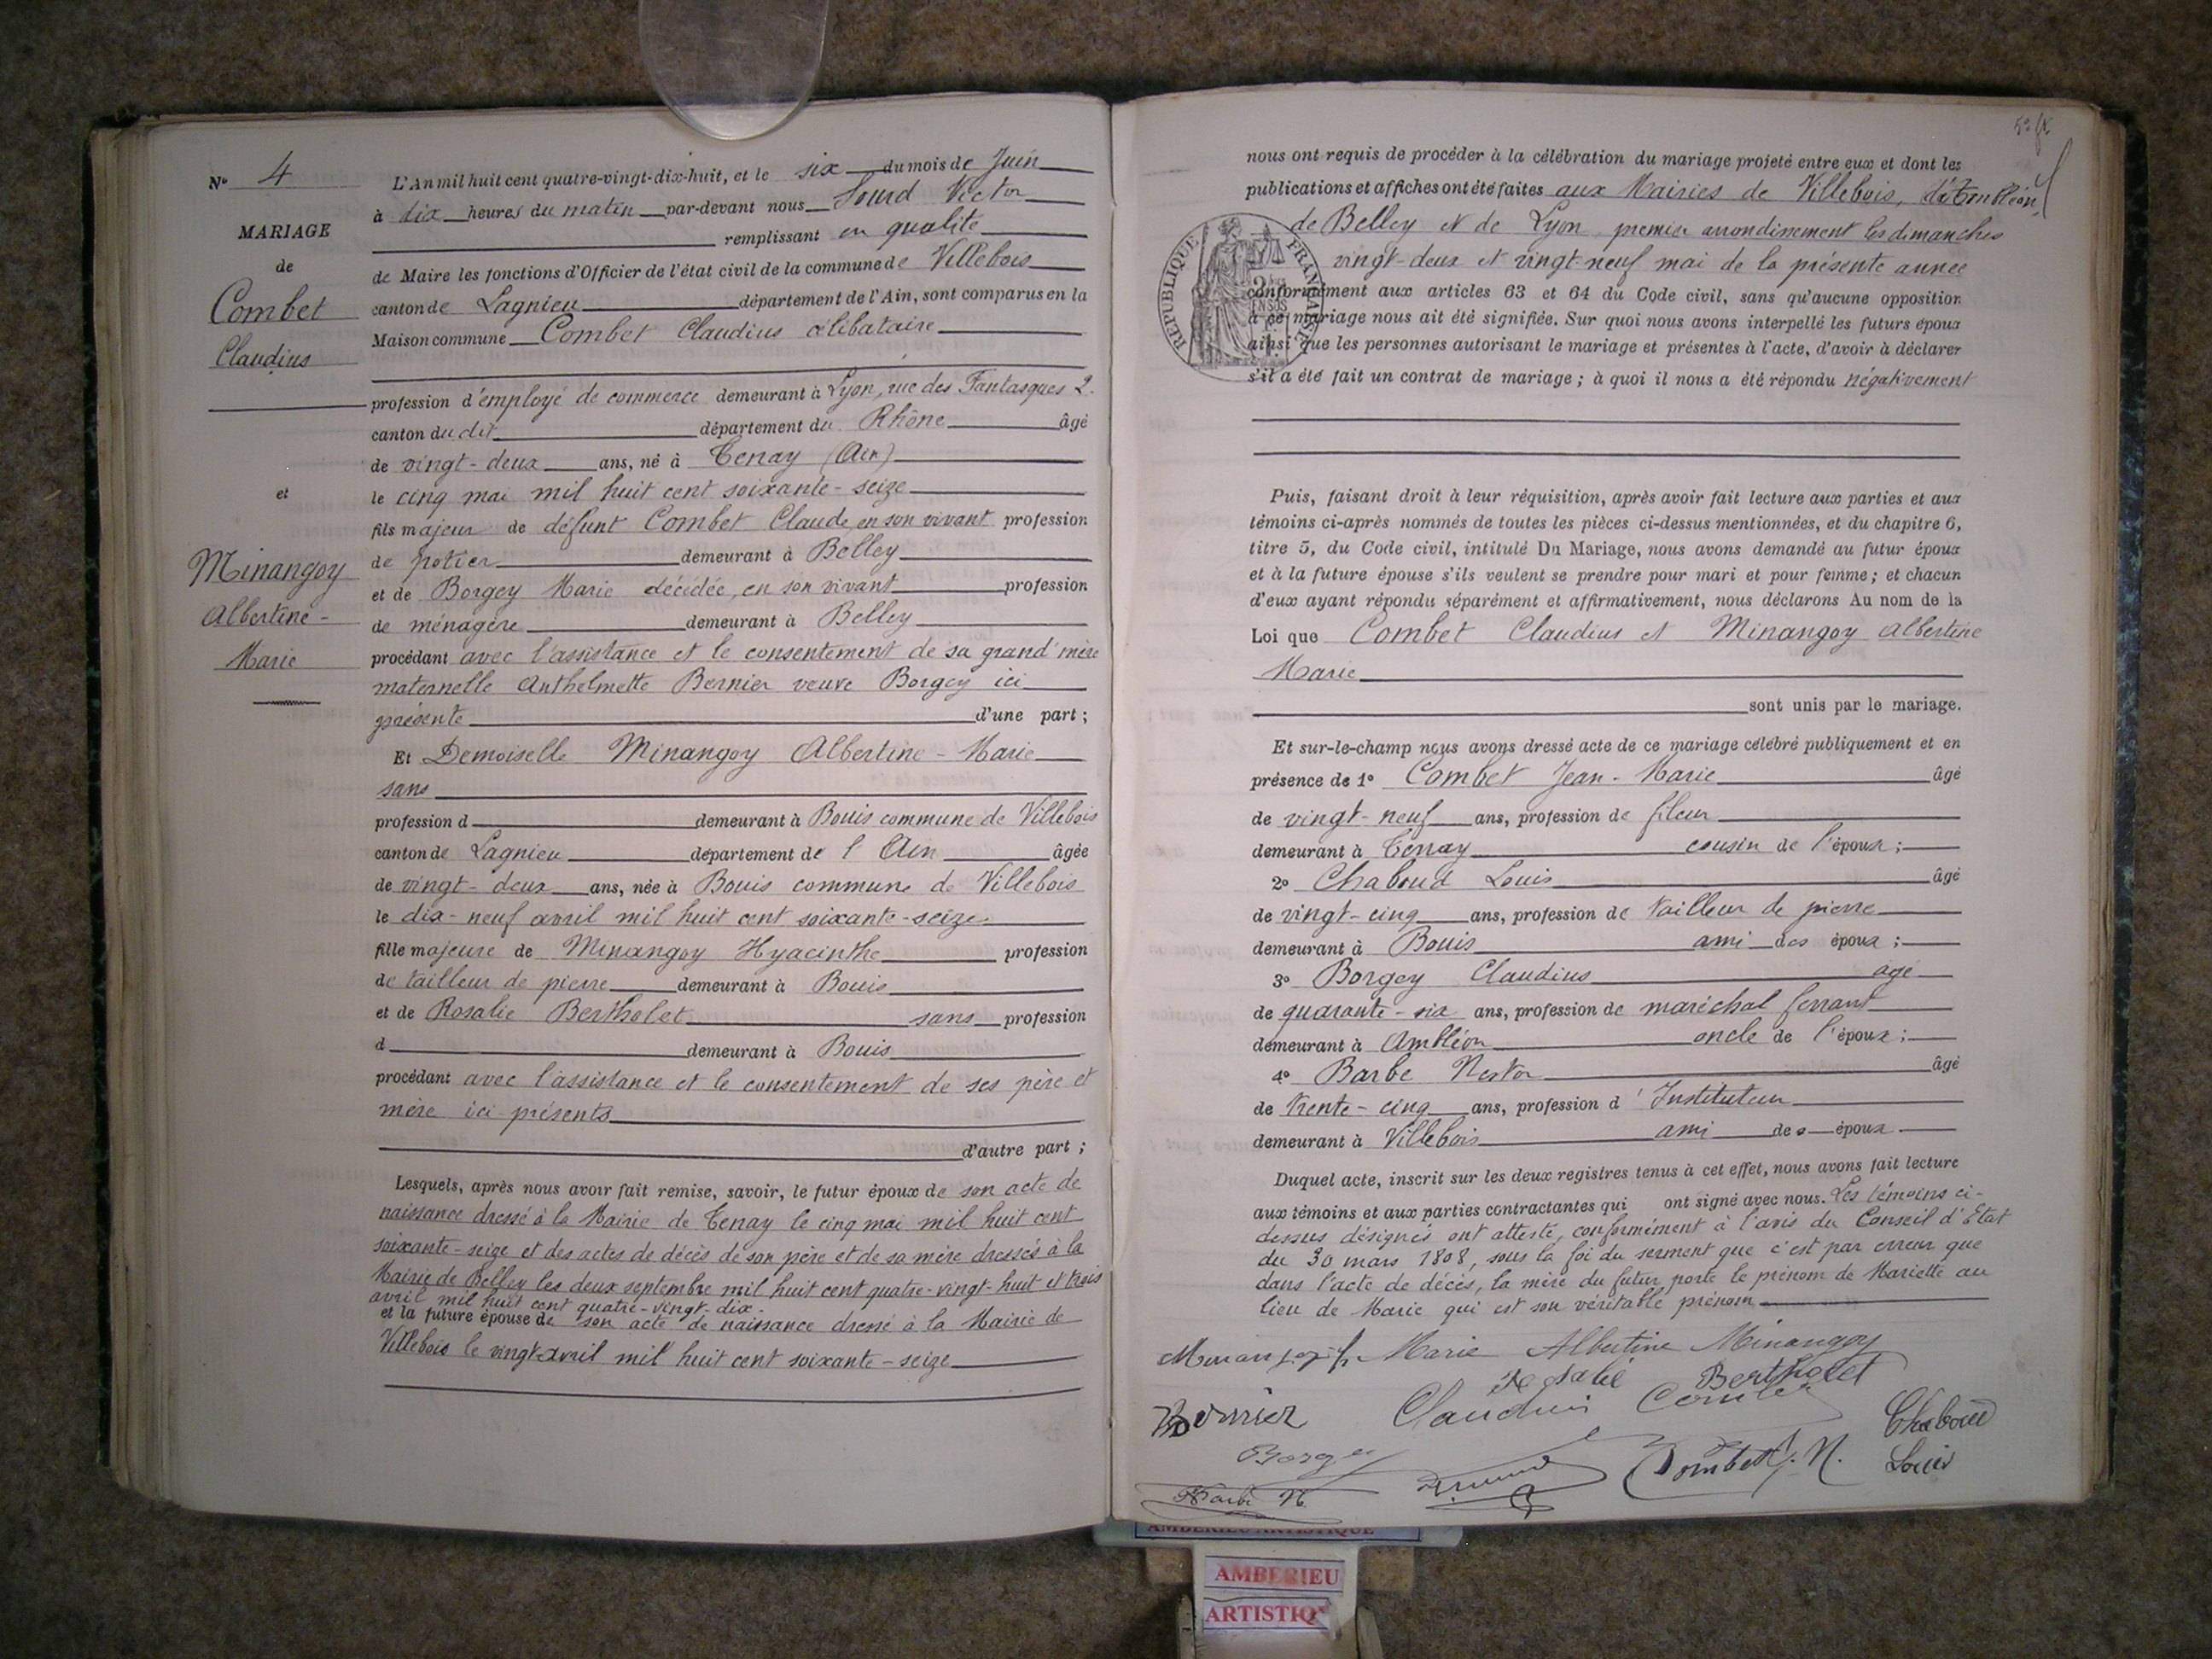 N° 4
MARIAGE
de
Combet
Claudius
et
Minangoy
Albertine -
Marie
L'An mil huit cent quatre-vingt-dix-huit, et le six du mois de Juin
à dix heures du matin par-devant nous Sourd Victor
remplissant en qualité
de Maire les fonctions d'Officier de l'état civil de la commune de Villebois
canton de Lagnieu département de l'Ain, sont comparus en la
Maison commune Combet Claudius célibataire
profession d'employé de commerce demeurant à Lyon, rue des Fantasques 2.
canton du dit département du Rhône âgé
de vingt-deux ans, né à Tenay (Ain)
le cinq mai mil huit cent soixante-seize
fils majeur de défunt Combet Claude, en son vivant profession
de potier demeurant à Belley
et de Borgey Marie décédée, en son vivant profession
de ménagère demeurant à Belley
procédant avec l'assistance et le consentement de sa grand'mère
maternelle Anthelmette Bernier veuve Borgey ici
présente d'une part ;
Et Demoiselle Minangoy Albertine - Marie
sans
profession d demeurant à Bouis commune de Villebois
canton de Lagnieu département de l'Ain âgée
de vingt-deux ans, née à Bouis commune de Villebois
le dix-neuf avril mil huit cent soixante-seize
fille majeure de Minangoy Hyacinthe profession
de tailleur de pierre demeurant à Bouis
et de Rosalie Bertholet sans profession
d demeurant à Bouis
procédant avec l'assistance et le consentement de ses père et
mère ici présents
d'autre part ;
Lesquels, après nous avoir fait remise, savoir, le futur époux de son acte de
naissance dressé à la Mairie de Tenay le cinq mai mil huit cent
soixante-seize et des actes de décès de son père et de sa mère dressés à la
Mairie de Belley les deux septembre mil huit cent quatre-vingt-huit et trois
avril mil huit cent quatre-vingt-dix.
et la future épouse de son acte de naissance dressé à la Mairie de
Villebois le vingt avril mil huit cent soixante-seize
nous ont requis de procéder à la célébration du mariage projeté entre eux et dont les
publications et affiches ont été faites aux Mairies de Villebois, d'Ambléon,
de Belley et de Lyon premier arrondissement les dimanches
vingt-deux et vingt-neuf mai de la présente année
RÉPUBLIQUE FRANÇAISE
conformément aux articles 63 et 64 du Code civil, sans qu'aucune opposition
à ce mariage nous ait été signifiée. Sur quoi nous avons interpellé les futurs époux
ainsi que les personnes autorisant le mariage et présentes à l'acte, d'avoir à déclarer
s'il a été fait un contrat de mariage ; à quoi il nous a été répondu négativement
Puis, faisant droit à leur réquisition, après avoir fait lecture aux parties et aux
témoins ci-après nommés de toutes les pièces ci-dessus mentionnées, et du chapitre 6,
titre 5, du Code civil, intitulé Du Mariage, nous avons demandé au futur époux
et à la future épouse s'ils veulent se prendre pour mari et pour femme ; et chacun
d'eux ayant répondu séparément et affirmativement, nous déclarons Au nom de la
Loi que Combet Claudius et Minangoy Albertine
Marie
sont unis par le mariage.
Et sur-le-champ nous avons dressé acte de ce mariage célébré publiquement et en
présence de 1° Combet Jean-Marie âgé
de vingt-neuf ans, profession de fileur
demeurant à Tenay cousin de l'époux ;
2° Chaboud Louis âgé
de vingt-cinq ans, profession de tailleur de pierre
demeurant à Bouis ami des époux ;
3° Borgey Claudius âgé
de quarante-six ans, profession de maréchal ferrant
demeurant à Ambléon oncle de l'époux ;
4° Barbe Nestor âgé
de trente-cinq ans, profession d'Instituteur
demeurant à Villebois ami des époux
Duquel acte, inscrit sur les deux registres tenus à cet effet, nous avons fait lecture
aux témoins et aux parties contractantes qui ont signé avec nous. Les témoins ci-
dessus désignés ont attesté, conformément à l'avis du Conseil d'Etat
du 30 mars 1808, sous la foi du serment que c'est par erreur que
dans l'acte de décès, la mère du futur porte le prénom de Mariette au
lieu de Marie qui est son véritable prénom
Marie Albertine Minangoy
Rosalie Bertholet
Bernier Claudius Combet
Chaboud
Louis
Borgey
Combet J. M.
Barbe N.
AMBERIEU ARTISTIQUE
AMBERIEU
ARTISTIQ